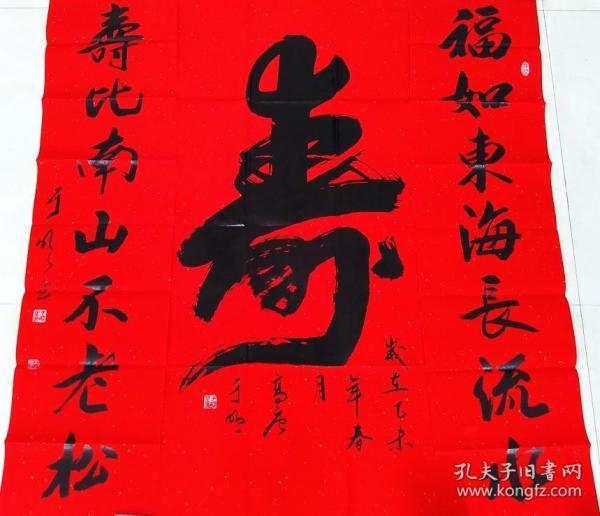 福如東海長流水
壽
歲在乙未
年春
月
高唐
于明
壽比南山不老松
于明
孔夫子旧书网
www.kongfz.com